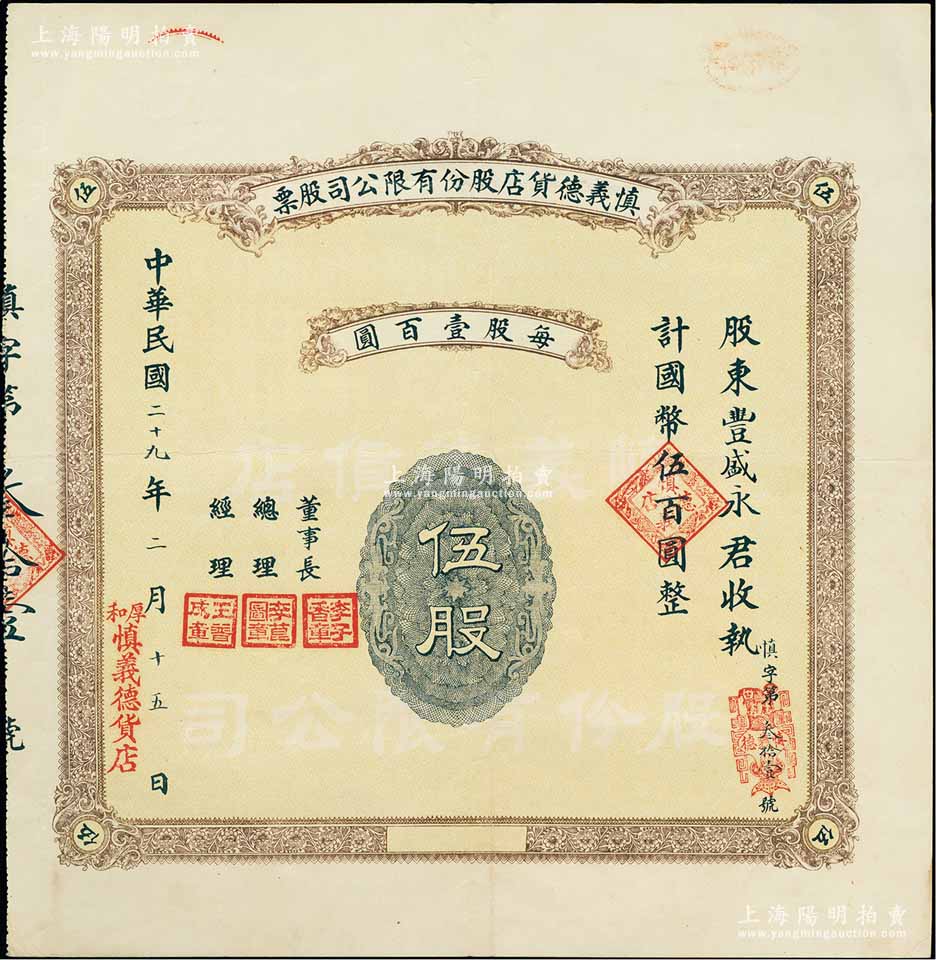 上海陽明拍賣
www.yangmingauction.com
慎義德貨店股份有限公司股票
每股壹百圓
股東豐盛永君收執
計國幣伍百圓整
伍股
上海陽明拍賣
www.yangmingauction.com
董事長
李子香章
總理
經理
中華民國二十九年二月十五日
厚和
慎義德貨店
慎字第叁拾壹號
慎字第
號
股份有限公司
伍
伍
上海陽明拍賣
www.yangmingauction.com